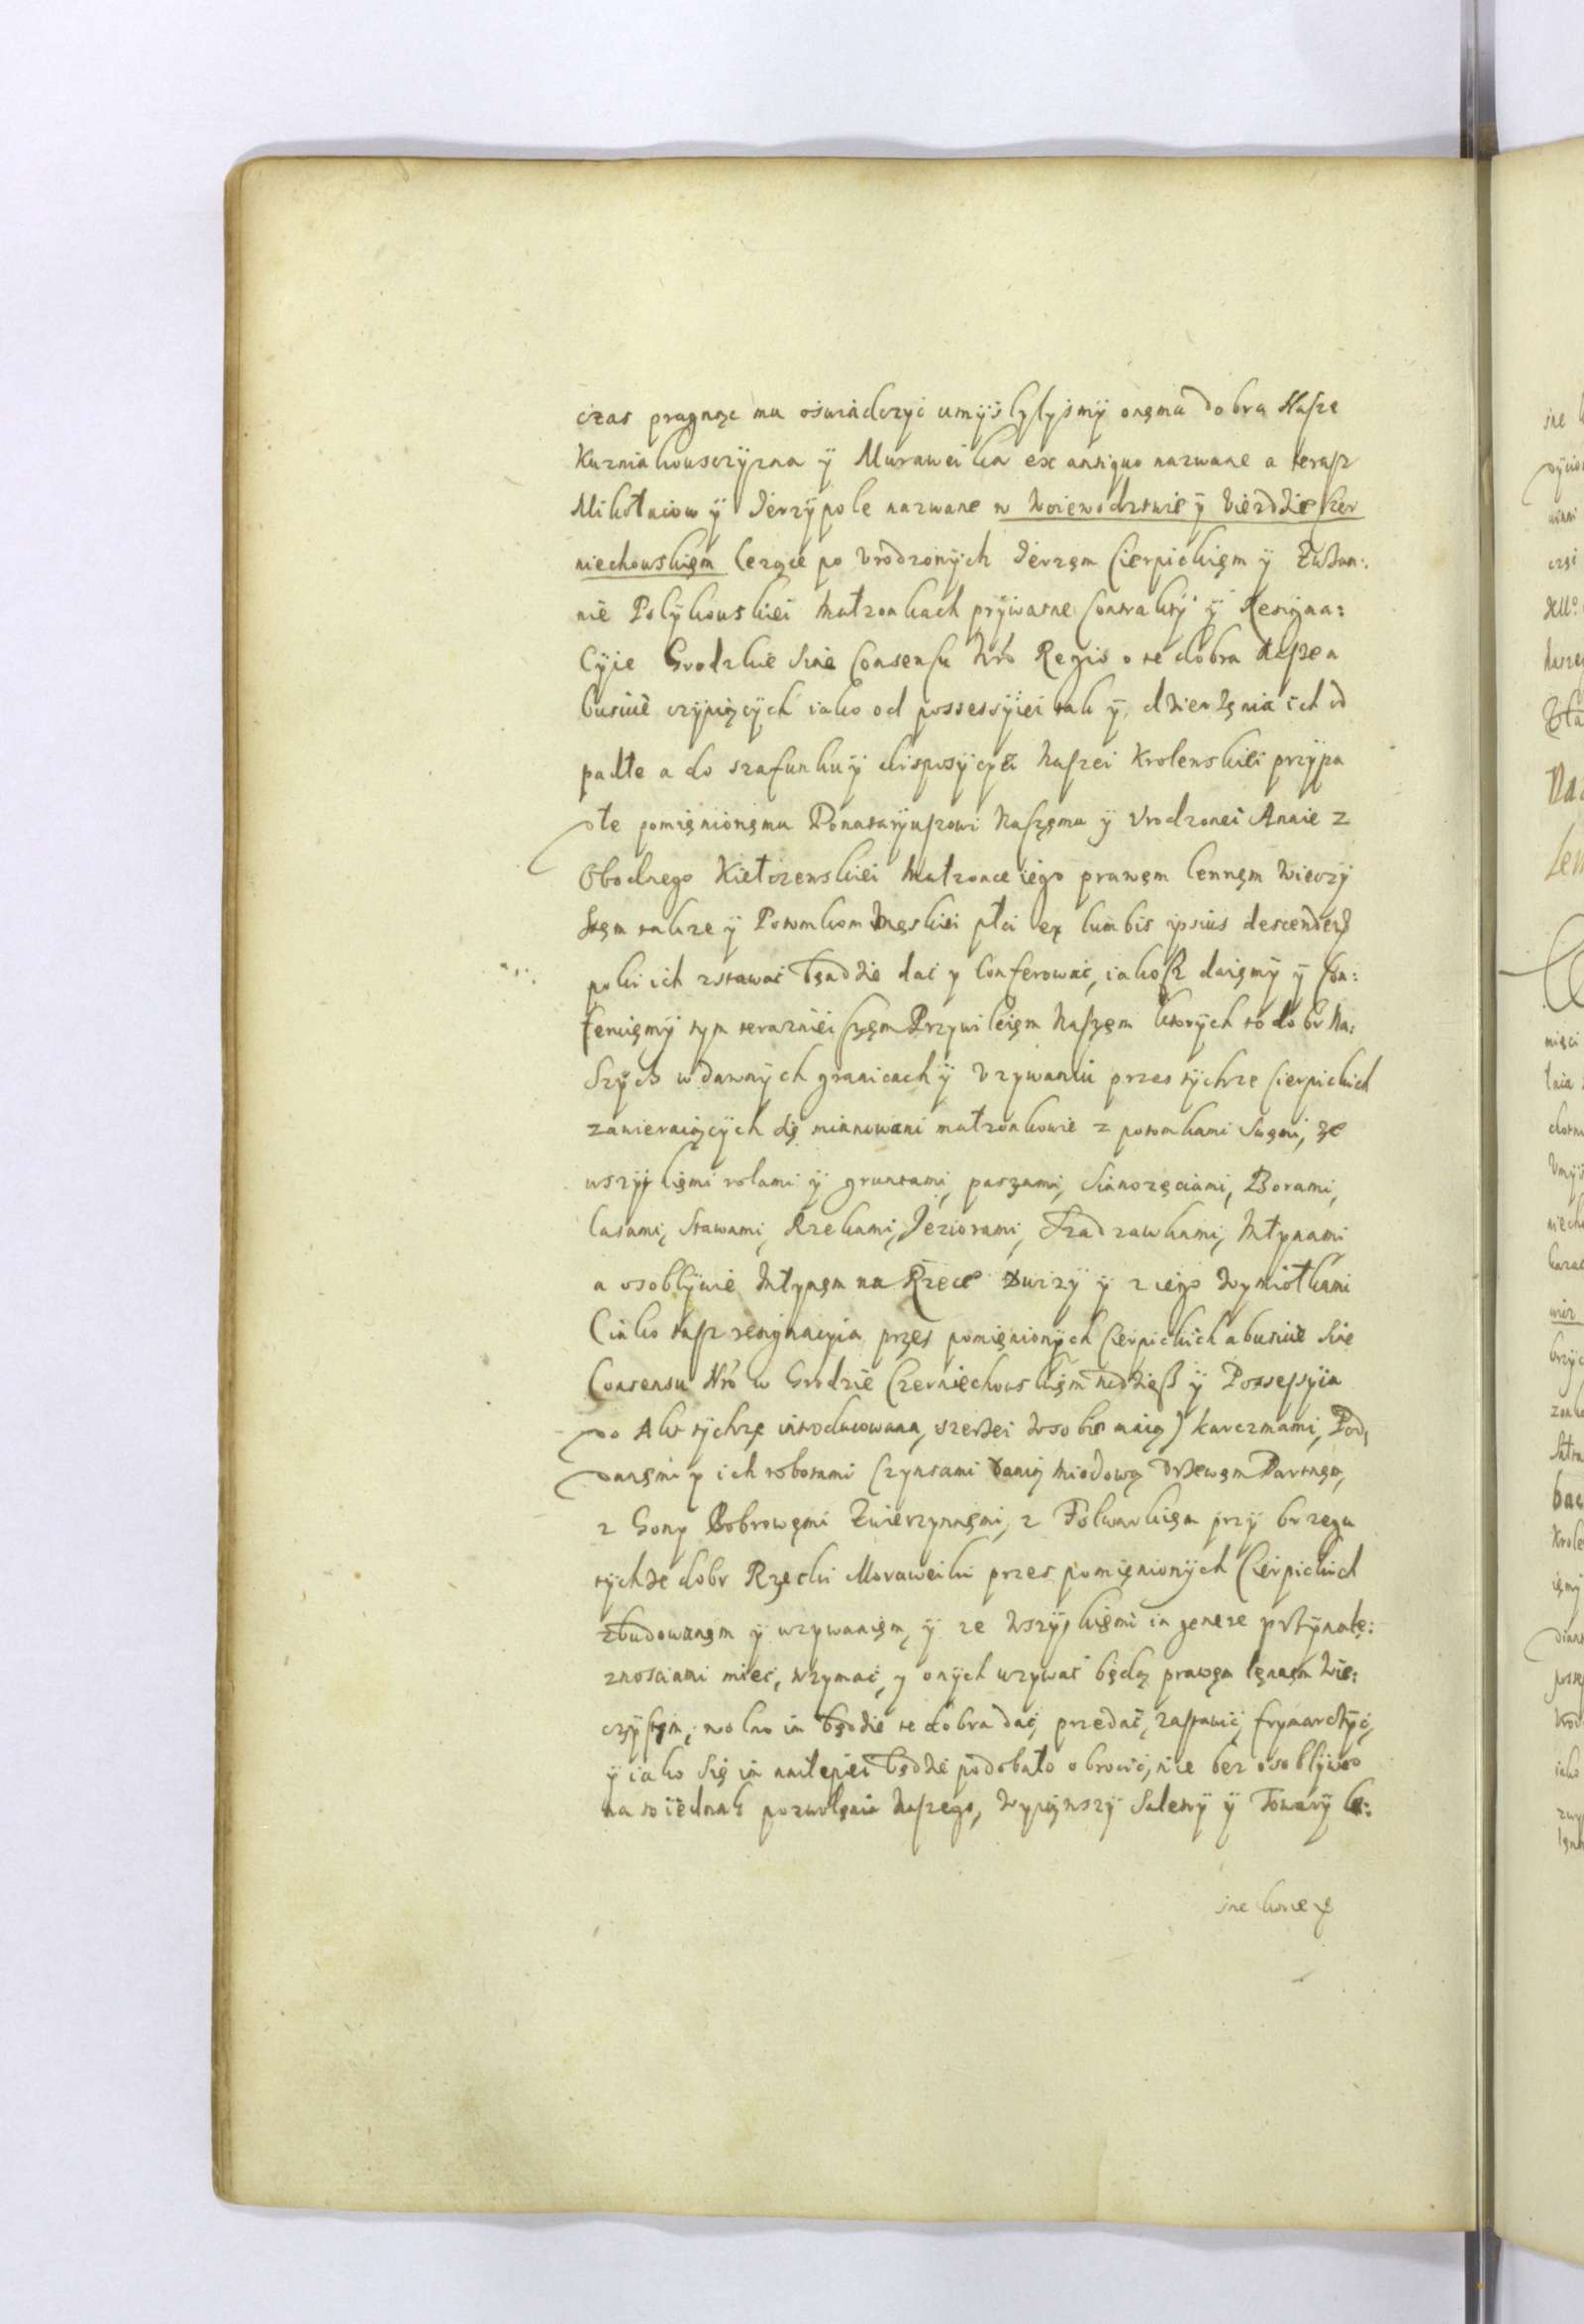 czas pragnąc mu oświadczyć umyslylysmÿ onęmu dobra Nasze
Kuzniakowsczÿzna ÿ Muraweika ex antiquo nazwane a teraz
Mikołaiow ÿ Jerzÿpole nazwane w Woiewodztwie ÿ Powiecie Czer
niechowskięm lezące po Vrodzonÿch Jerzęm Cierpickięm ÿ Zuzan:
nie Polÿkowskiei Małzonkach prÿwatne Contraktÿ ÿ Resigna:
cÿie Grodzkie Sine Consensu Nro Regio o te dobra Nasze a
busive czÿniącÿch iako od possessÿiei tak ÿ dzierzęnia ich od
padłe a do szafunku ÿ disposÿcÿei Naszei Krolewskiei przÿpa
dłe pomięnionęmu Donatarÿuszowi Naszęmu ÿ Vrodzonei Annie z
Obodnego Kiełczewskiei Małzonce iego prawęm lennęm Wieczÿ
stęm takze ÿ Potomkom Męskiei płci ex lumbis ipsius descenden
poki ich zstawac będzie dać y Conferować, iakosz daięmÿ ÿ Con:
feruięmÿ tym terazniei szęm Przywileięm Naszęm ktorÿch to dobr Na:
szÿch w dawnÿch granicach ÿ Vzywaniu przes tÿchze Cierpickich
zawieraiącÿch się mianowani małzonkowie z potomkami Swęmi, ze
wszÿskięmi rolami ÿ gruntami, paszami, Sianozęciami, Borami,
lasami, Stawami, Rzekami, Jeziorami, Sadzawkami, Młynami
a osoblÿwie Młynęm na Rzece Zwizÿ ÿ z iego Wymiołkami
(iako tasz resignacyia przes pomięnionÿch Cierpickich abusive Sine
Consensu Nro w Grodzie Czerniechowskięm ÿ Possessÿia
do Akt tÿchze introducowana, szerzei w sobie maią) karczmami, Pod
danęmi y ich robotami Czynsami Danią Miodową Drzewęm Bartnęm,
z Gony Bobrowęmi Zwierzynnęmi, z Folwarkięm przy brzegu
tÿchze dobr Rzeczki Moraweiki przes pomięnionÿch Cierpickich
zbudowanęm ÿ uzywanięm, ÿ ze Wszÿskięmi in genere przÿnalę:
znosciami mieć, trzymać, y onÿch uzywać będą prawęm lęnnęm Wie:
czÿstÿm, wolno im będzie te dobra dać, przedać, zastawić, frymarczÿć,
ÿ iako się im nailepiei będzie podobało obrocić, nie bez osoblÿwo
na to iednak pozwolęnia Naszego, Wyiąwszÿ Saletrÿ ÿ Towarÿ le:
sne ktore